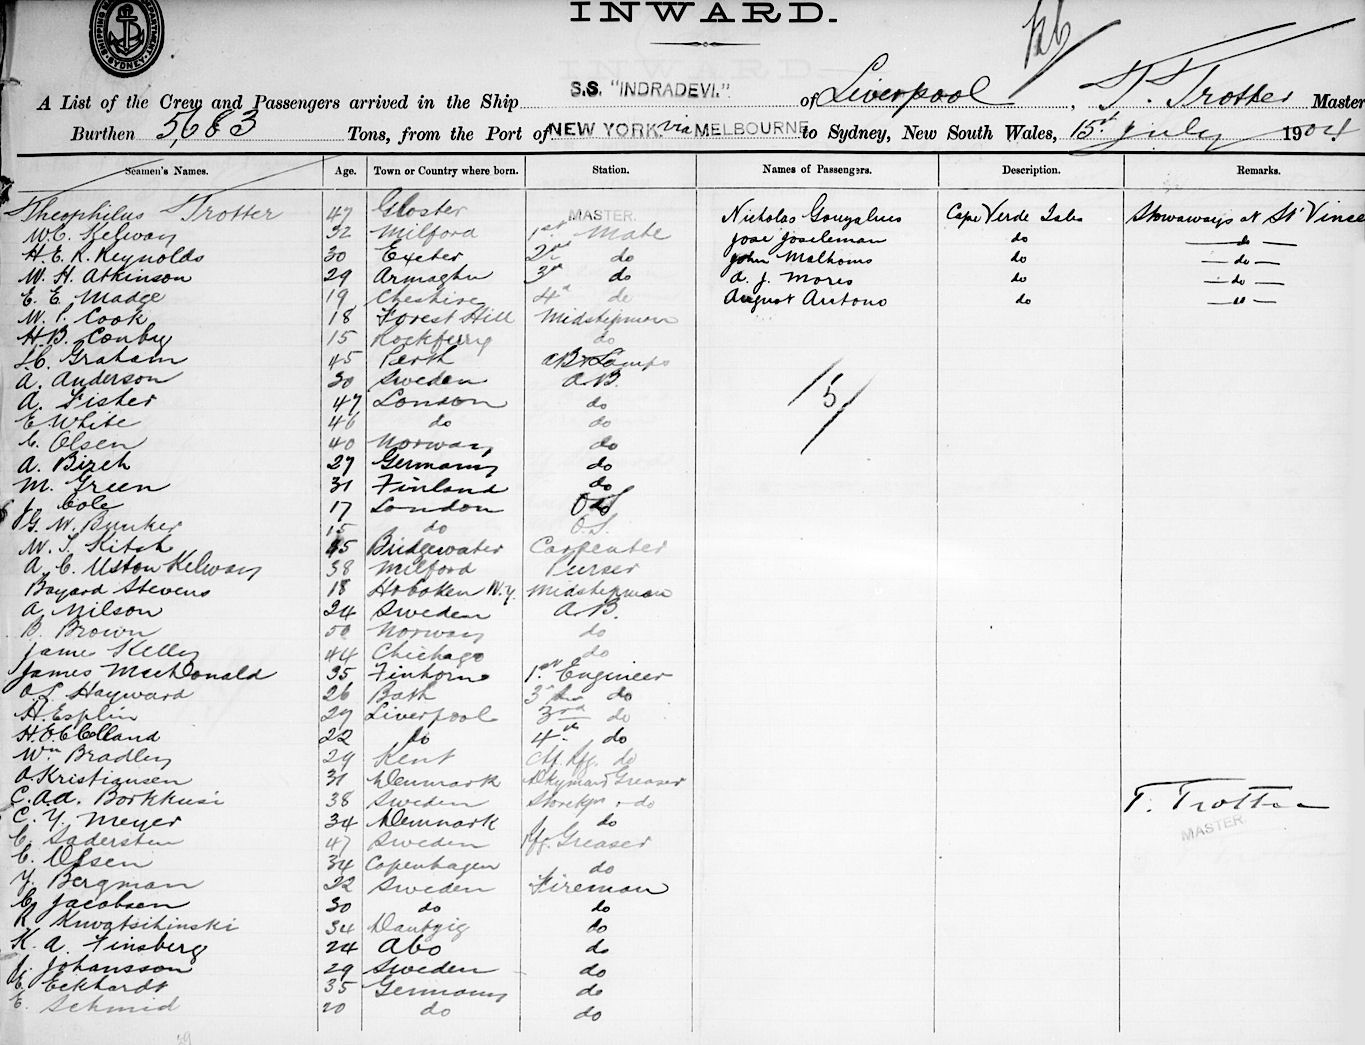 INWARD.
SYDNEY
A List of the Crew and Passengers arrived in the Ship S.S. "INDRADEVI." of Liverpool, T. Trotter Master
Burthen 5,683 Tons, from the Port of NEW YORK via MELBOURNE to Sydney, New South Wales, 15st July 1904
Seamen's Names. Age. Town or Country where born. Station. Names of Passengers. Description. Remarks.
Theophilus Trotter 47 Gloster MASTER. Nicholas Gonzalves Cape Verde Isles Stowaways at St Vince
W.E. Kelway 32 Milford 1st Mate Jose Joseleman do do
H. E. K. Reynolds 30 Exeter 2nd do John Malhoms do do
W. H. Atkinson 29 Armagh 3rd do A. J. Mores do do
E. E. Madge 19 Cheshire 4th do August Antono do do
W. P. Cook 18 Forest Hill Midshipman
H. B. Conby 15 Rockferry do
Graham 45 Perth AB & Lamps
A. Anderson 30 Sweden A.B. 5
A. Fisher 47 London do
E White 46 do do
C. Olsen 40 Norway do
A. Birch 27 Germany do
M. Green 31 Finland do
J. Cole 17 London O.S
G. W. Bunker 15 do O.S.
W. S. Kitch 45 Bridgewater Carpenter
A. C. Uston Kelway 38 Milford Purser
Bayard Stevens 18 Hoboken N.Y. Midshipman
A. Nilson 24 Sweden A.B.
B. Brown 50 Norway do
Jame Kelly 44 Chichago do
James MacDonald 35 Finhorne 1st Engineer
O. S. Hayward 26 Bath 3rd do
H. Esplin 27 Liverpool 3rd do
22 do 4th do
Wm Bradley 29 Kent do
O. Kristiansen 31 Denmark Dkyman & Greaser
C. Ad. Borkhusi 38 Sweden Storekpr & do T. Trotter
C. Y. Meyer 34 Denmark do MASTER.
C. Sadersten 47 Sweden Rfg. Greaser
C. Olsen 34 Copenhagen do
Y. Bergman 22 Sweden Fireman
C. Jacobsen 30 do do
R. 34 Dantzig do
K. A. Finsberg 24 Abo do
J. Johansson 29 Sweden do
E. Eckhardt 35 Germany do
E. Schmid 20 do do